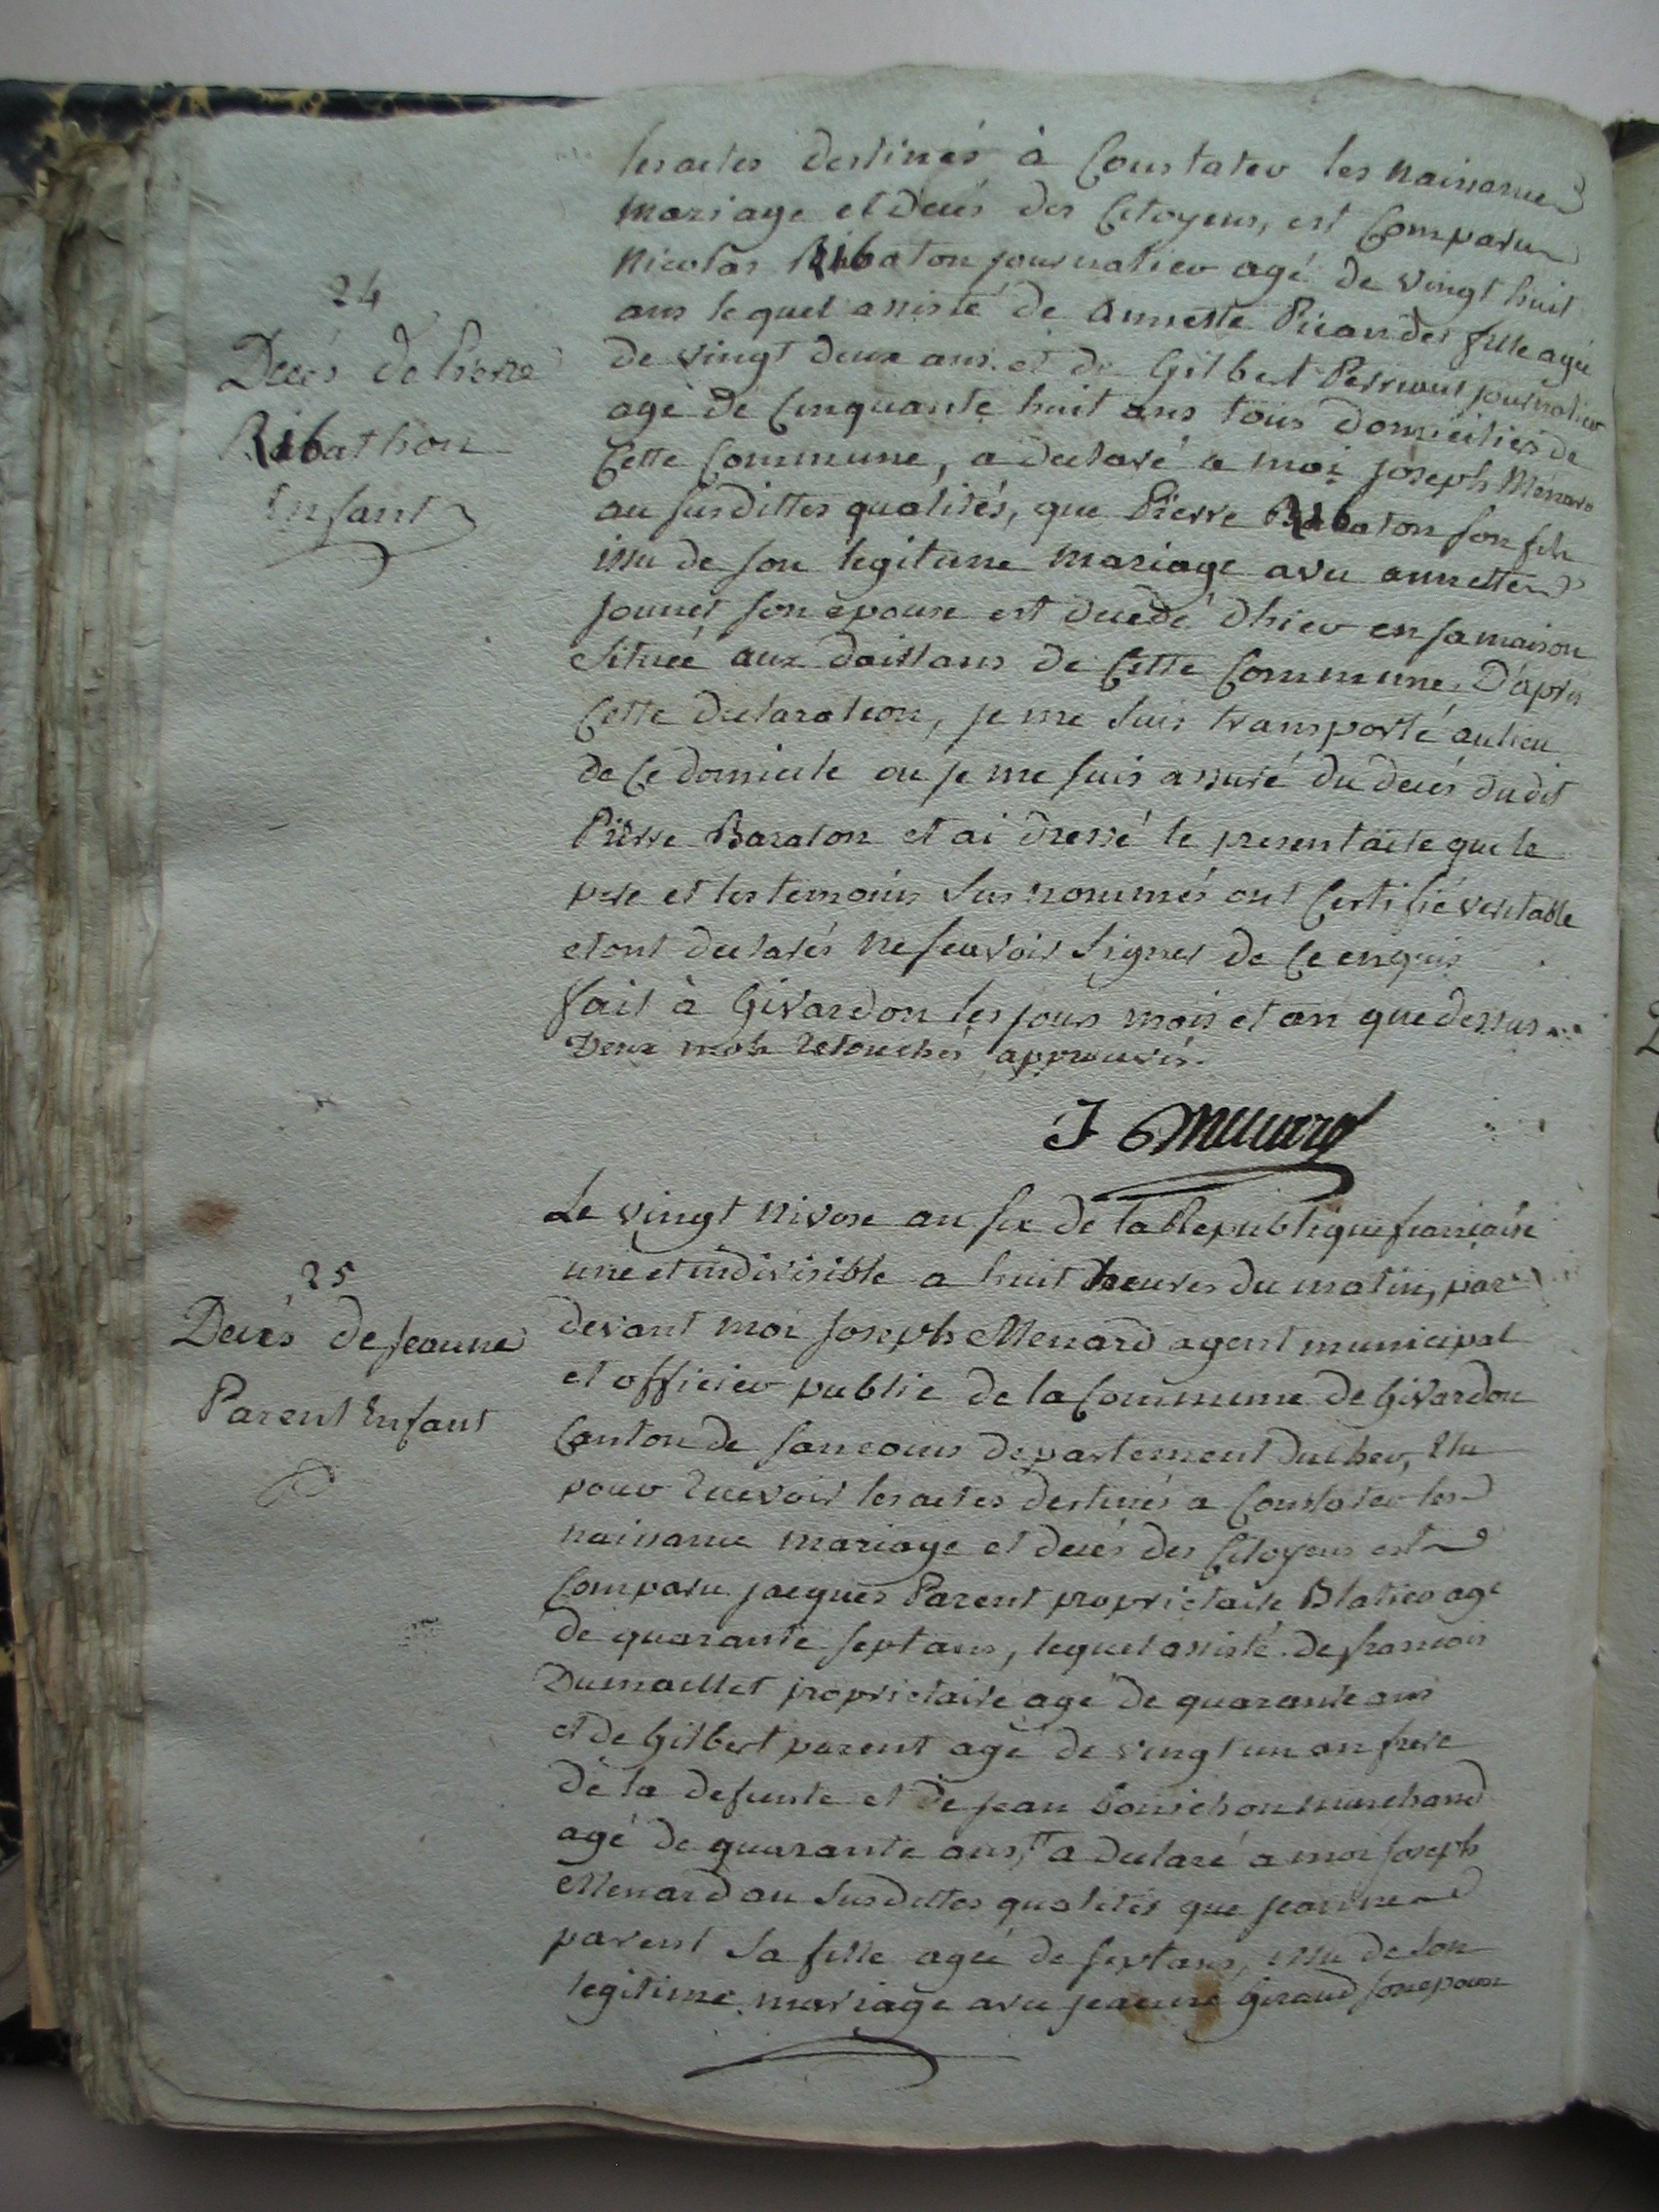 les actes destinés à Constater les naissance
mariage et décés des Citoyens, est Comparu
Nicolas Ribaton journalier agé de vingt huit
ans lequel assisté de Annette fille agée
de vingt deux ans et de Gilbert Perriout journalier
agé de Cinquante huit ans tous domiciliés de
Cette Commune, a declaré a moi joseph Ménard
au susdittes qualités, que Pierre Ribaton son fils
issu de son legitime mariage avec annette
jounet son epouse est decedé dhier en sa maison
située aux de Cette Commune, D'après
Cette declaration, je me suis transporté au lieu
de Ce domicile ou je me suis assuré du decés dudit
Pierre Baraton et ai dressé le present acte que le
pere et les temoins sus nommés ont Certifié veritable
et ont declarés ne scavoir signer de Ce enquis
fait à Givardon les jours mois et an que dessus
Deux mots retouchés approuvés.
J Menard
24
Decés de Pierre
Ribathon
Enfant
Le vingt nivose an six de la Republique francaise
une et indivisible a huit heures du matin, par
devant moi Joseph Menard agent municipal
et officier public de la Commune de Givardon
Canton de sancoins departement du Cher, Elu
pour recevoir les actes destinés a Constater les
naissance mariage et decés des Citoyens est
Comparu jacques Parent proprietaire Blatier agé
de quarante sept ans, lequel assisté de francois
Dumaillet proprietaire agé de quarante ans
et de Gilbert parent agé de vingt un an frere
de la defunte et de jean bonichon marchand
agé de quarante ans, a declaré a moi Joseph
Menard au susdittes qualités que jeanne
parent sa fille agée de sept ans, issu de son
legitime mariage avec jeanne Giraud son epouse
25
Decés de jeanne
Parent Enfant